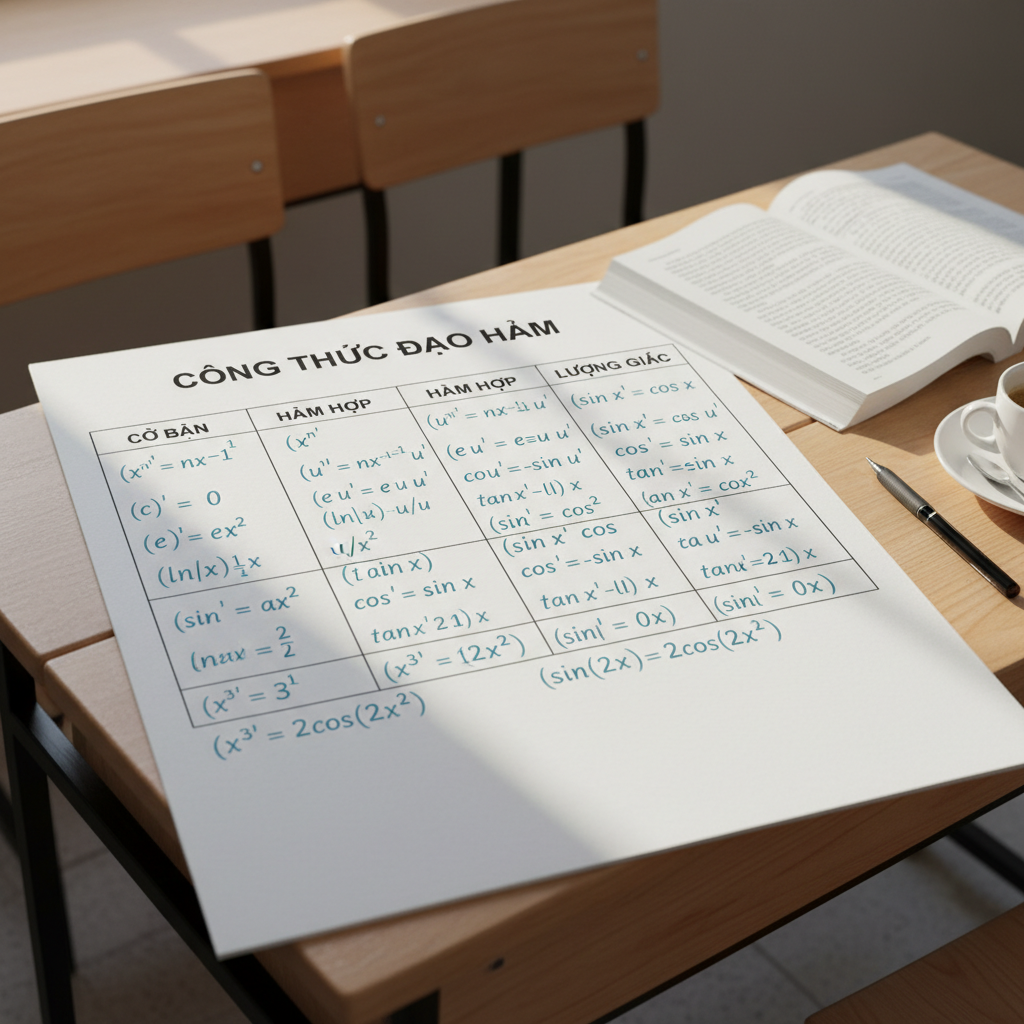 CÔNG THỨC ĐẠO HẢM
CỜ BẬN
HÀM HỢP
HÀM HỢP
LƯỢNG GIÁC
(xⁿ' = nx-1¹
(c)' = 0
(e)' = ex²
(ln|x) ½x
(xⁿ'
(u'' = nx⁻¹⁻¹ u'
(e u' = e u u'
(ln|u) u/u
u/x²
(e u' = e=u u'
cou' = -sin u'
tanx'-11) x
(sin' = cos²
(sin x' = cos x
(sin x' = cos u'
cos' = sin x
tan' =-sin x
(an x' = cox²
(sin' = ax²
(nax = 2/2
(tain x)
cos' = sin x
tanx' 21) x
(sin x' cos
cos' = -sin x
tan x' -11) x
(sin x'
ta u' = -sin x
tanx' =21) x
(x³' = 3¹
(x³' = 12x²)
(sin' = 0x)
(sin' = 0x)
(x³' = 2cos(2x²)
(sin(2x) = 2cos(2x²)